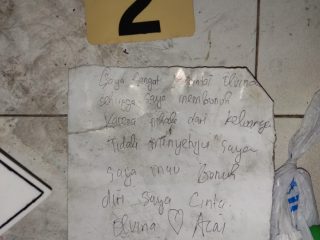 2
Saya sangat Olvina
sehingga saya membunuh
Karena dari keluarganya
tidak menyetujui saya
saya mau bunuh
diri saya Cinta
Olvina ♡ Acai